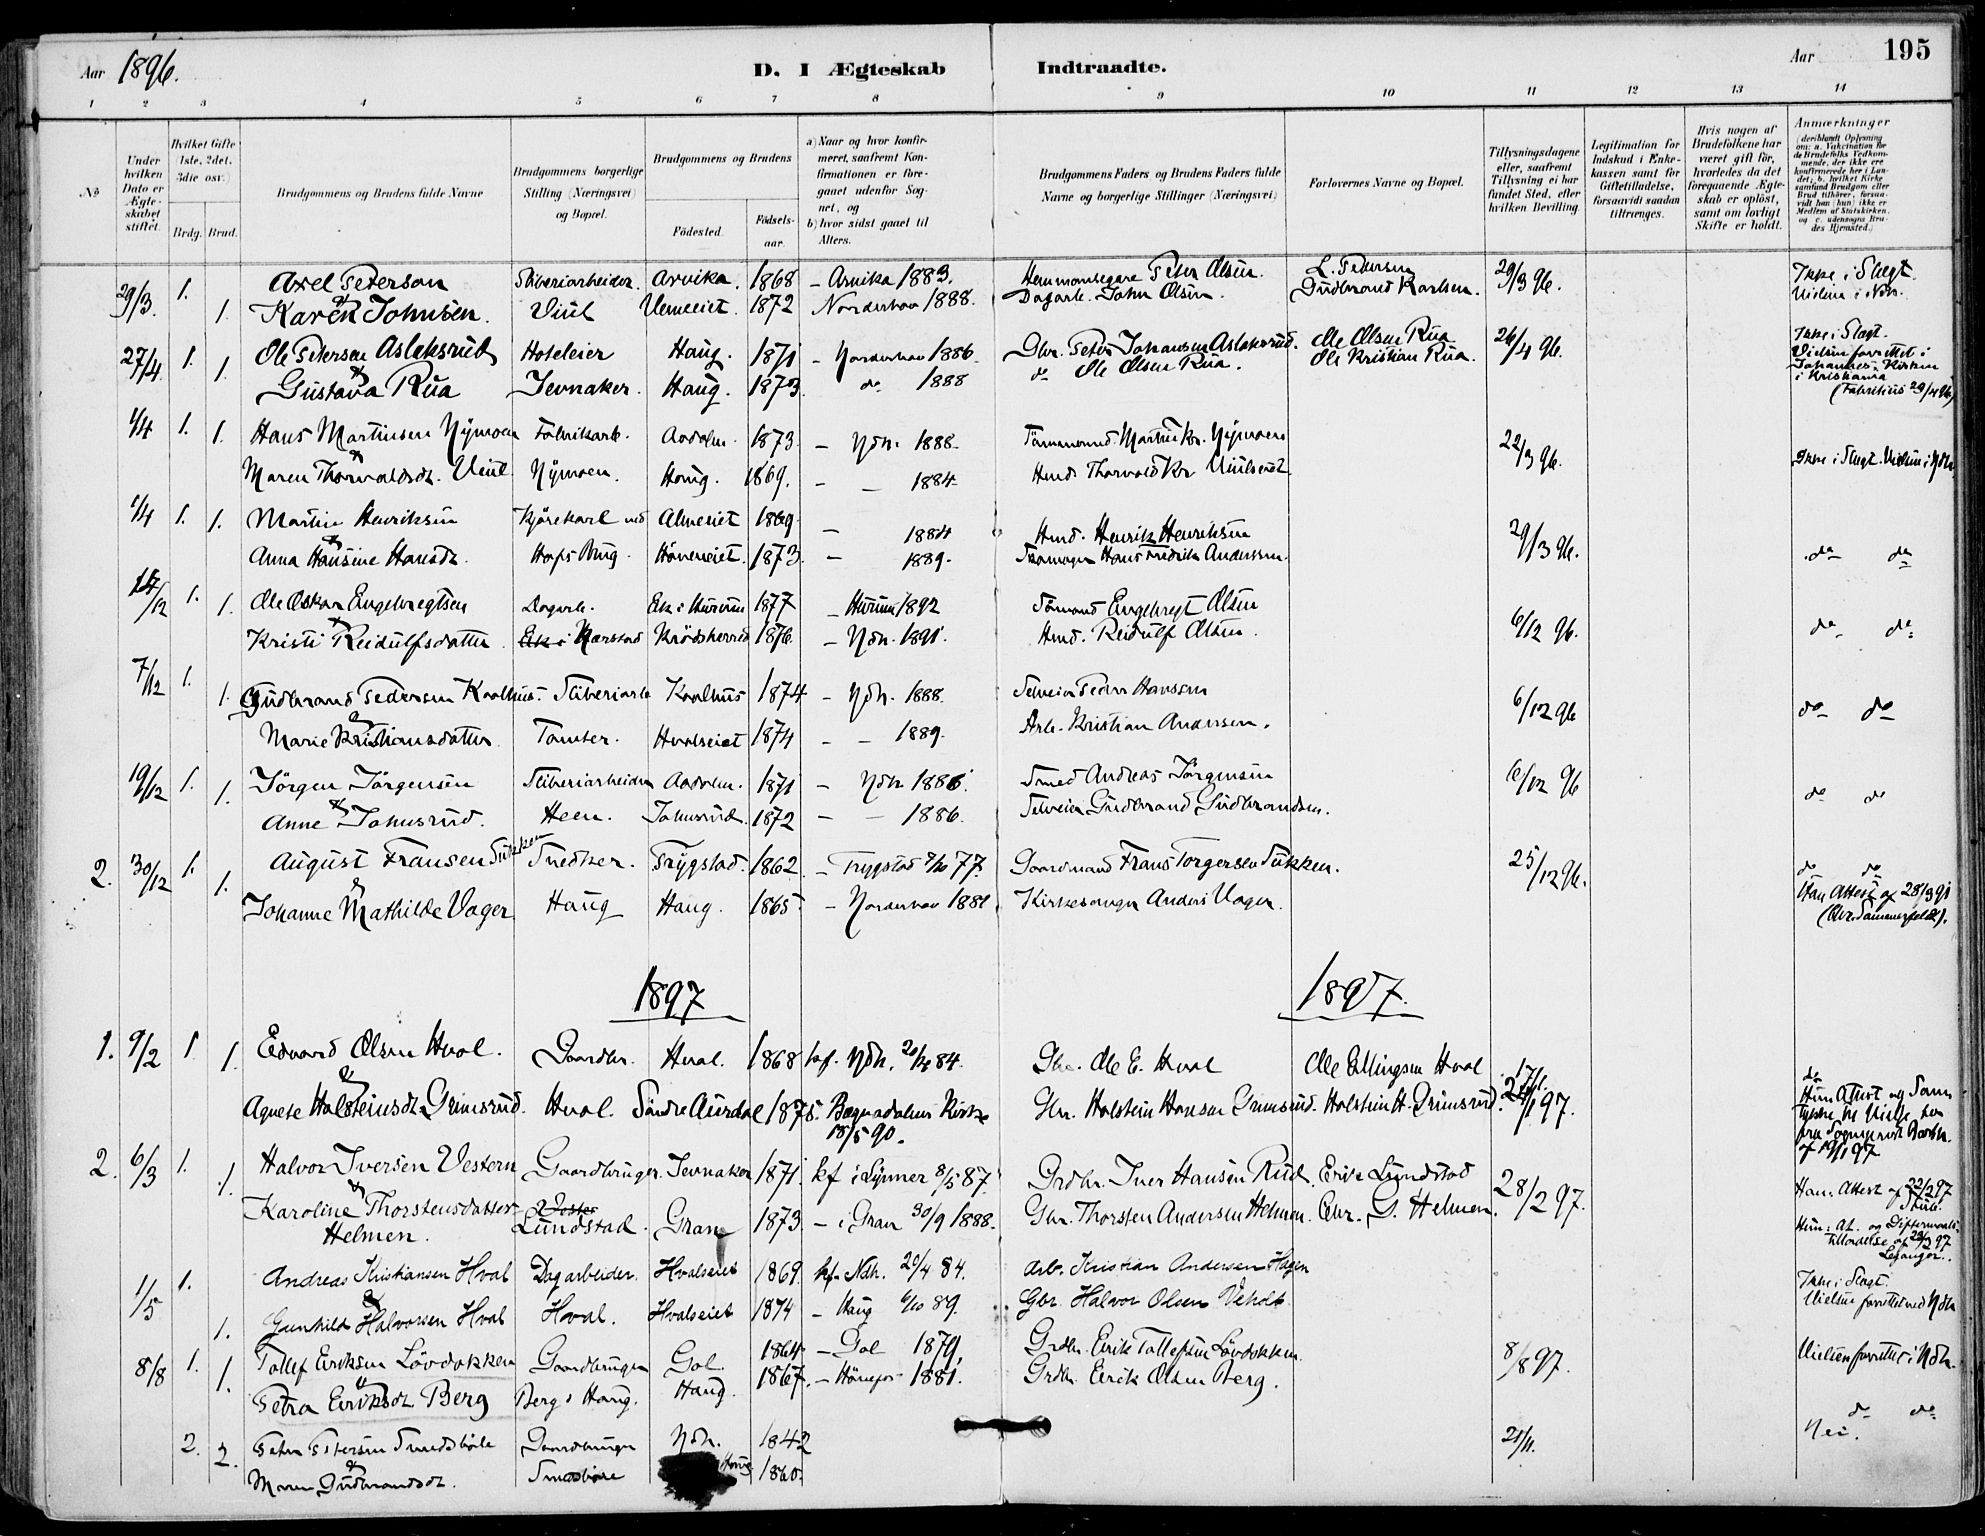 Aar 1896.
D. I Ægteskab Indtraadte.
Aar 195
1 2 3 4 5 6 7 8 9 10 11 12 13 14
No
Under hvilken Dato er Ægteskabet stiftet.
Hvilket Gifte (1ste, 2det, 3die osv.)
Brdg. Brud.
Brudgommens og Brudens fulde Navne
Brudgommens borgerlige Stilling (Næringsvei) og Bopæl.
Brudgommens og Brudens
Födested. Födselsaar.
a) Naar og hvor konfirmeret, saafremt Konfirmationen er foregaaet udenfor Sognet, og
b) hvor sidst gaaet til Alters.
Brudgommens Faders og Brudens Faders fulde Navne og borgerlige Stillinger (Næringsvei)
Forlovernes Navne og Bopæl.
Tillysningsdagene eller, saafremt Tillysning ei har fundet Sted, efter hvilken Bevilling.
Legitimation for Indskud i Enkekassen samt for Giftetilladelse, forsaavidt saadan tiltrænges.
Hvis nogen af Brudefolkene har været gift för, hvorledes da det foregaaende Ægteskab er oplöst, samt om lovligt Skifte er holdt.
Anmærkninger (deriblandt Oplysning om: a. Vakcination for de Brudefolks Vedkommende, der ikke ere konfirmerede her i Landet; b. hvilket Kirkesamfund Brudgom eller Brud tilhörer, forsaavidt han (hun) ikke er Medlem af Statskirken, og c. udensogns Brudes Hjemsted.)
29/3. 1. Axel Peterson Sliberiarbeider. Arvika. 1868 - Arvika 1883. Hemmansegare Peter Olsen. L. Pedersen 29/3 96. Ikke i Slegt.
1. & Karen Johnsen. Viul Vemeeiet. 1872 Norderhov 1888. Dagarb. John Olsen. Gudbrand Karlsen. Vielsen i Ndh.
27/4 1. Ole Petersen Aslaksrud Hoteleier Haug. 1871 - Norderhov 1886. Gbr. Peter Johansen Aslaksrud. Ole Olsen Rua 26/4 96. Ikke i Slegt.
1. & Gustava Rua Jevnaker. Haug. 1873. do 1888 do Ole Olsen Rua. Ole Kristian Rua. Vielsen forrettet i Johannes Kirken i Kristiania (Fabritius 29/4 96)
1/4 1. 1. Hans Martinsen Nymoen Fabrikarb. Aadalen. 1873. - Ndh. 1888. Tömmermd. Martin Kr. Nymoen 22/3 96.
& Maren Thorvaldsdt. Viul Nymoen. Haug. 1869. - - 1884. Hmd. Thorvald Kr. Viulseiet Ikke i Slegt. Vielsen i Ndh.
1/4 1. 1. Martin Henriksen Kjörekarl ved Almeeiet 1869 - 1884 Hmd. Henrik Henriksen 29/3 96.
& Anna Hansine Hansdt. Hofs Brug. Höneneiet. 1873. - 1889. Skomager Hans Fredrik Andersen. do do
/12 1. 1. Ole Oskar Engebregtsen Dagarb. Ek i Hurum 1877 - Hurum 1892 Sömand Engebregt Olsen 6/12 96.
& Kristi Reidulfsdatter Nærstad Krödsherred 1876. - Ndh. 1891. Hmd. Reidulf Olsen. do do
7/12 1. 1. Gudbrand Pedersen Kvalhus. Sliberiarb Kvalhus 1874 - Ndh. 1888. Selveier Peder Hansen 6/12 96
& Marie Kristiansdatter Tanber. Hvalseiet 1874 - - 1889. Arb. Kristian Andersen. do do
19/12 1. 1. Jörgen Jörgensen Sliberiarbeider Aadalen. 1871 - Ndh 1886. Smed Andreas Jörgensen 6/12 96
& Anne Johnsrud. Heen. Johnsrud. 1872 - - 1886. Selveier Gudbrand Gudbrandsen. do do
2. 30/12 1. 1. August Fransen Sukken Snedker. Trygstad. 1862. - Trygstad 77. Gaardmand Frans Torgersen Sukken. 25/12 96. do do
& Johanne Mathilde Vager Haug Haug. 1865 - Norderhov 1881 Kirkesanger Anders Vager. Han Attest af 28/3 91
1897 1897.
1. 9/2 1. 1. Edvard Olsen Hval. Gaardbr. Hval. 1868 kf. Ndh. 84. Gbr. Ole E. Hval Ole Ellingsen Hval 17/1.
& Agnete Holsteinsdt. Grimsrud. Hval. Söndre Aurdal 1875. Bagnadalens Kirke 18/5 90. Gbr. Holstein Hansen Grimsrud. Holstein H. Grimsrud. /1 97. do Hun Attest og af 19/1 97
2. 6/3 1. 1. Halvor Iversen Vestern Gaardbruger. Jevnaker 1871. kf i Lunner 8/5 87. Grdbr. Iver Hansen Rud. Erik Lundstad 28/2 97. Han: Attest af 22/2 97
& Karoline Thorstensdatter Helmen. Lundstad. Gran 1873 - i Gran 30/9 1888. Gbr. Thorsten Andersen Helmen. Chr. G. Helmen. Hun: At. og
1/5 1. Andreas Kristiansen Hval Dagarbeider. Hvalseiet 1869. kf. Ndh. 20/4 84. Arb. Kristian Andersen Hagen Ikke i Slegt.
1. & Gunhild Halvorsen Hval Hval. Hvalseiet 1874 - Haug 89. Gbr. Halvor Olsen Vielsen forrettet ved Ndh
8/8 1. 1. Tollef Eriksen Lövdokken Gaardbruger Gol 1864. - Gol 1879. Grdbr. Erik Tollefsen Lövdokken 8/8 97. Vielsen forrettet i Ndh.
& Petra Eriksdt Berg Berg i Haug. Haug. 1867. - Hönefos 1881. Grdbr. Erik Olsen Berg. do do
2. 2. Peter Petersen Smedsböle Gaardbruger Ndh. 1842 21/11. Nei.
& Maren Gudbrandsdt. Smedsböle Haug 1860.